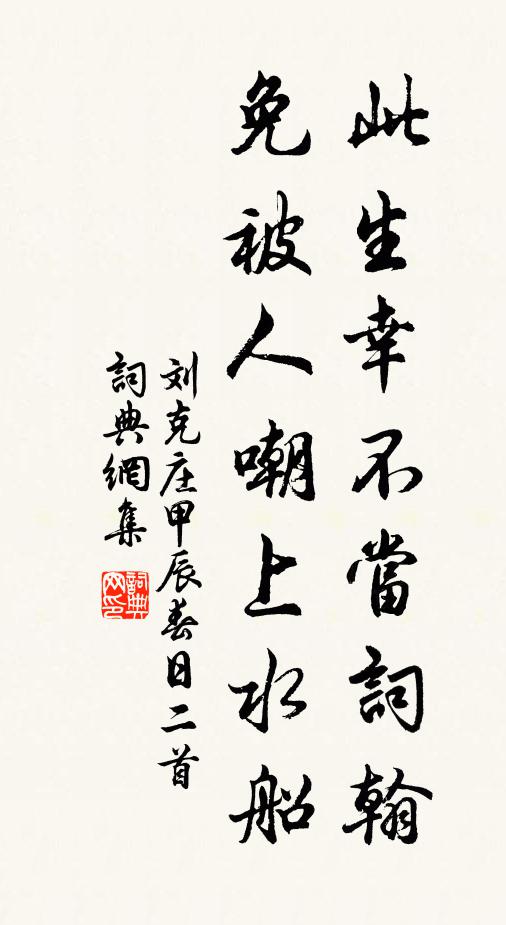 此生幸不當詞翰
免被人嘲上水船
刘克庄甲辰春日二首
詞典網集
詞典網印